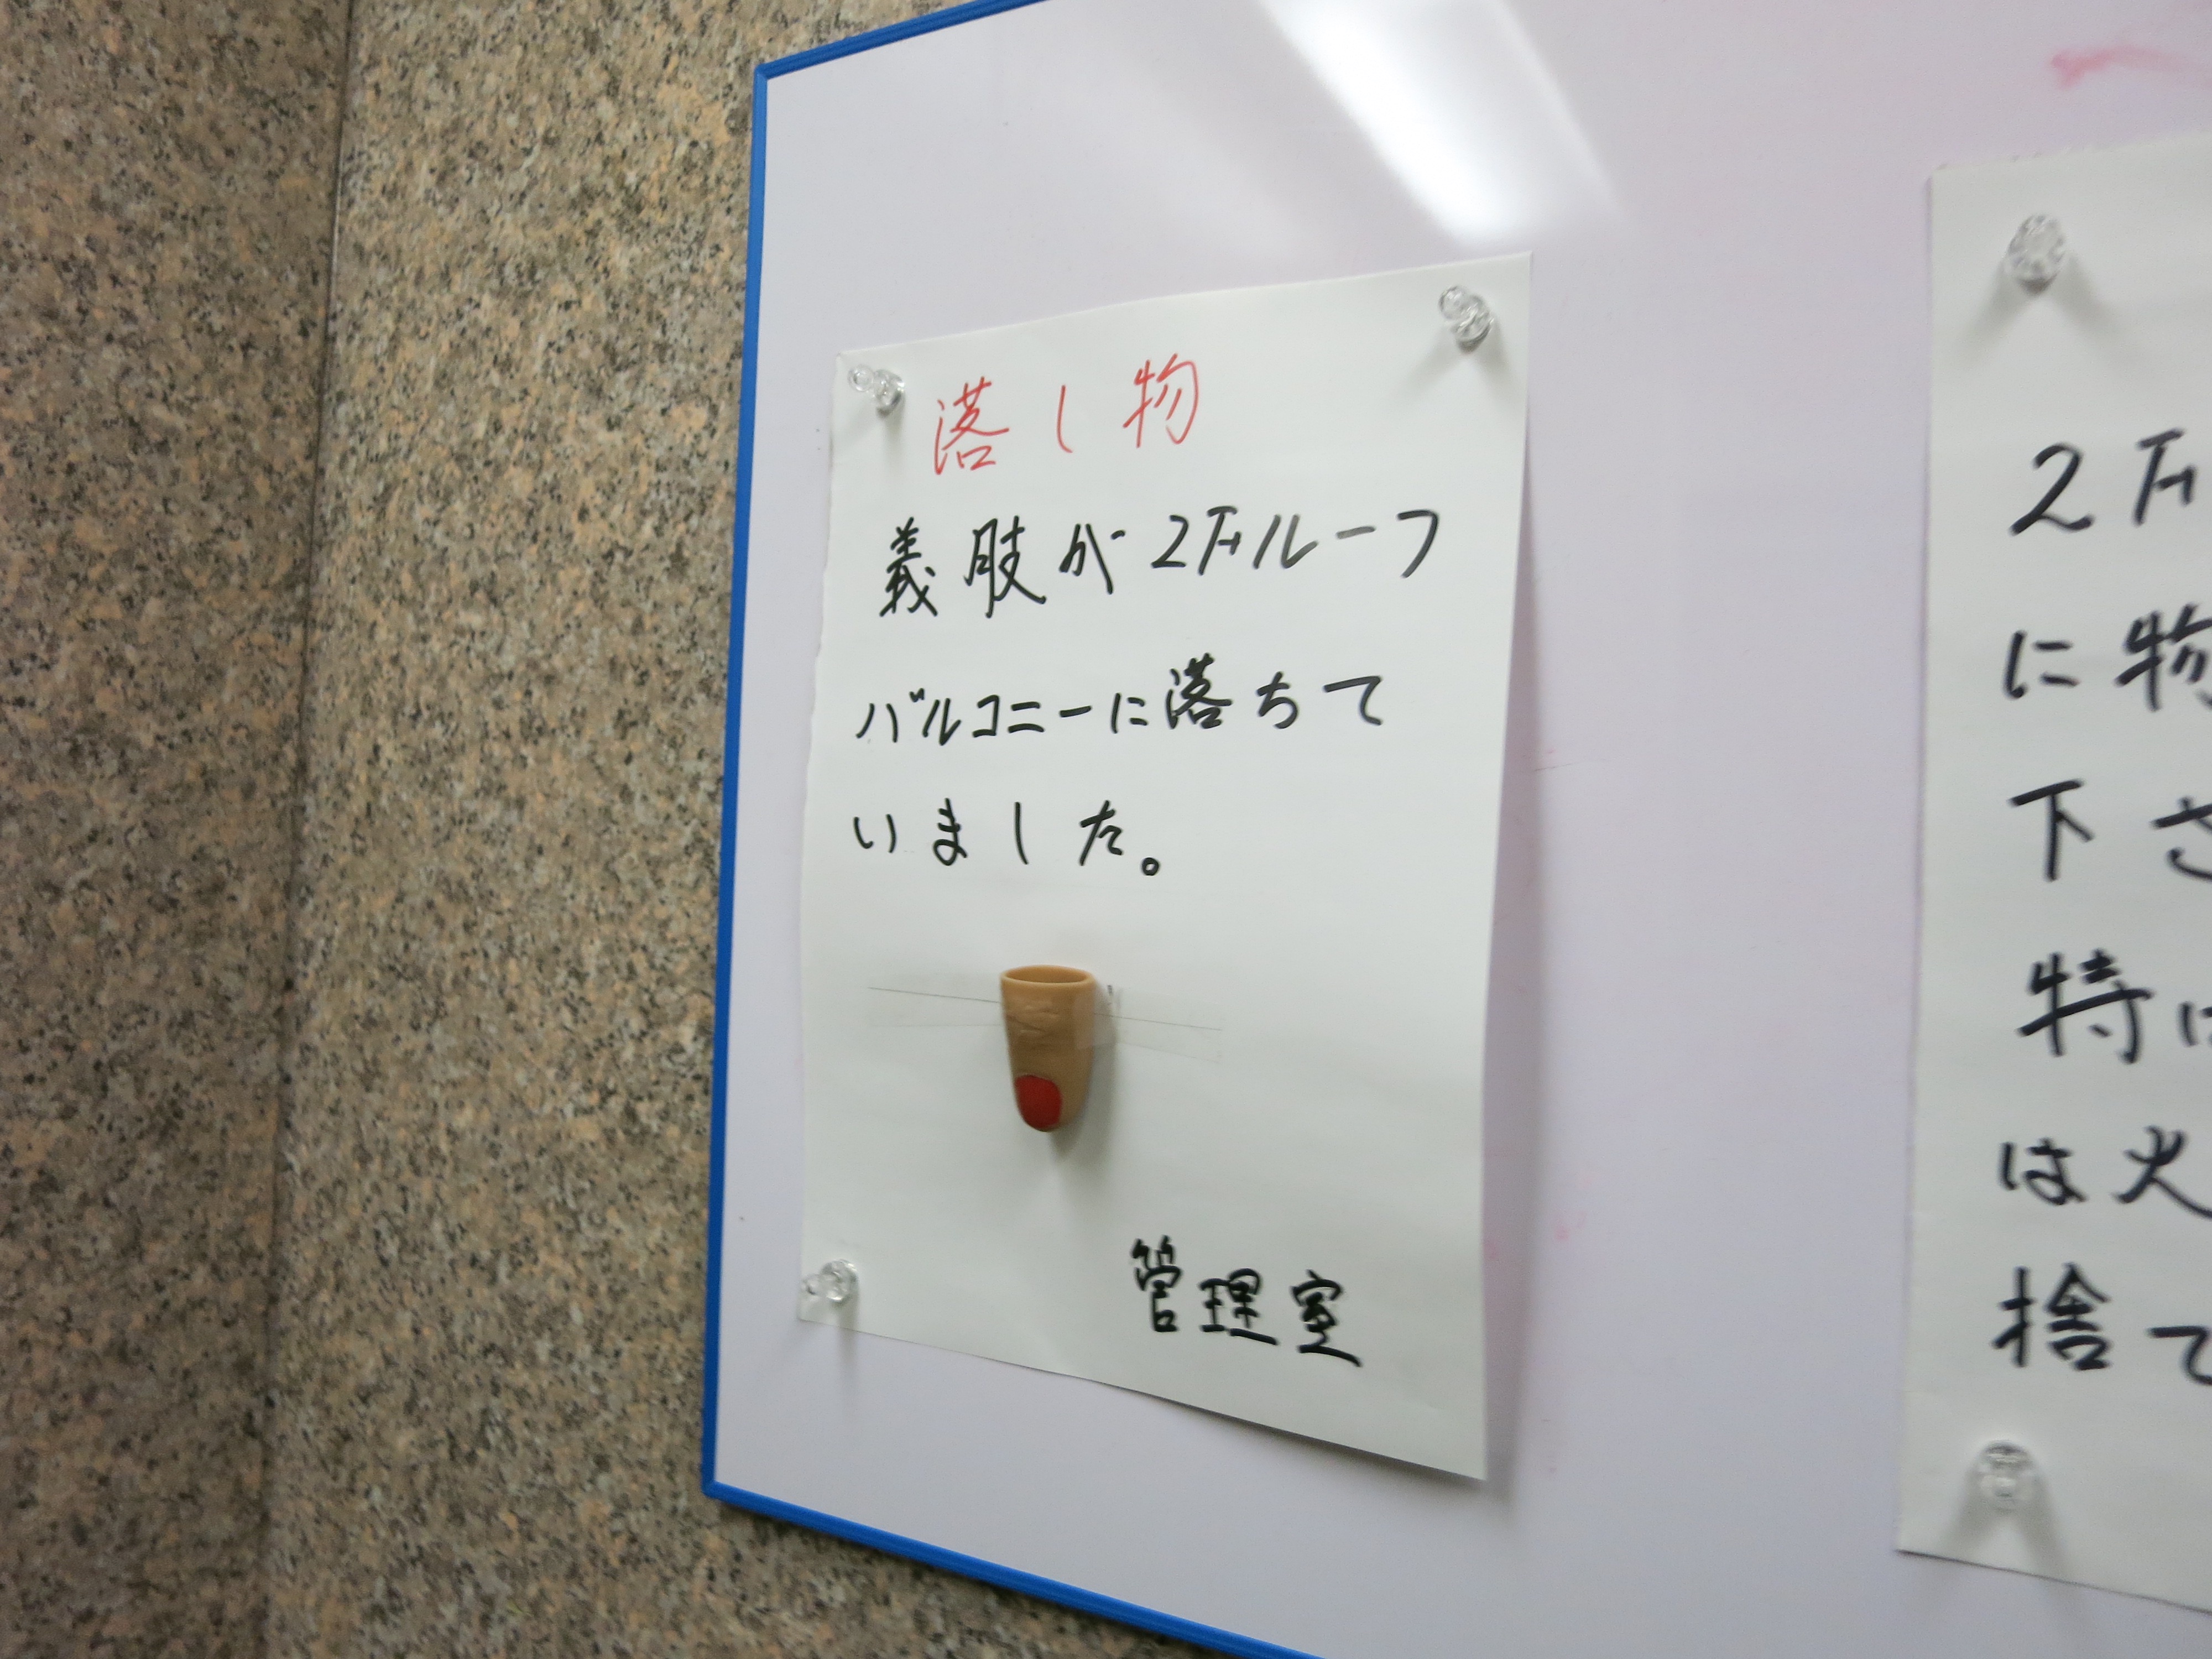 落し物
義肢が2Fルーフ
バルコニーに落ちて
いました。
管理室
2F
に物
下さ
特に
は火
捨て